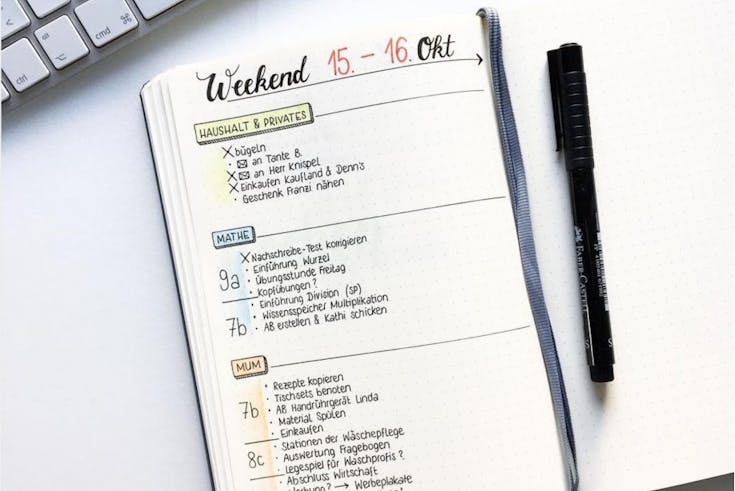 Weekend 15. - 16. Okt
HAUSHALT & PRIVATES
bügeln
an Tante B.
an Herr Knispel
Einkaufen Kaufland & Denn's
Geschenk Franzi nähen
MATHE
Nachschreibe-Test korrigieren
9a
Einführung Wurzel
Übungsstunde Freitag
Kopfübungen?
7b
Einführung Division (SP)
Wissensspeicher Multiplikation
AB erstellen & Kathi schicken
MUM
7b
Rezepte kopieren
Tischsets benoten
AB Handrührgerät Linda
Material Spülen
Einkaufen
8c
Stationen der Wäschepflege
Auswertung Fragebogen
Legespiel für Waschprofis?
Abschluss Wirtschaft
Werbung? → Werbeplakate
FABER-CASTELL
S
ctrl
alt
⌘